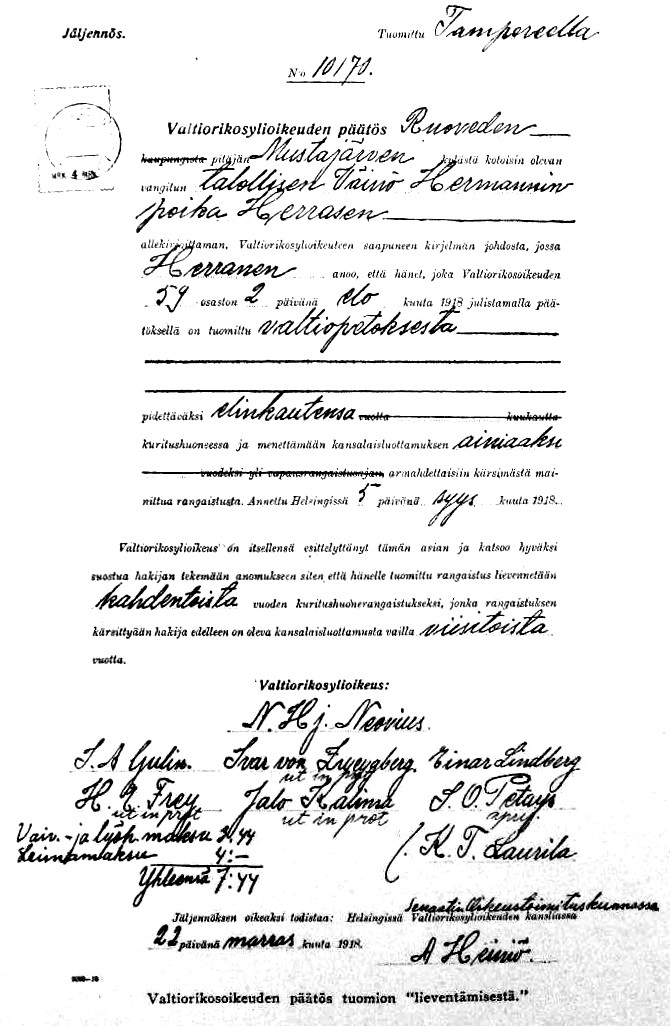 Jäljennös.
Tuomittu Tampereella
No 10170.
Valtiorikosylioikeuden päätös Ruoveden
kaupungista pitäjän Mustajärven kylästä kotoisin olevan
vangitun talollisen Väinö Hermannin
poika Herrasen
allekirjoittaman, Valtiorikosylioikeuteen saapuneen kirjelmän johdosta, jossa
Herranen anoo, että hänet, joka Valtiorikosoikeuden
59 osaston 2 päivänä elo kuuta 1918 julistamalla pää-
töksellä on tuomittu valtiopetoksesta
pidettäväksi elinkautensa vuotta kuukautta
kuritushuoneessa ja menettämään kansalaisluottamuksen ainiaaksi
vuodeksi yli vapausrangaistusajan, armahdettaisiin kärsimästä mai-
nittua rangaistusta. Annettu Helsingissä 5 päivänä syys kuuta 1918.
Valtiorikosylioikeus on itsellensä esittelyttänyt tämän asian ja katsoo hyväksi
suostua hakijan tekemään anomukseen siten, että hänelle tuomittu rangaistus lievennetään
kahdentoista vuoden kuritushuonerangaistukseksi, jonka rangaistuksen
kärsittyään hakija edelleen on oleva kansalaisluottamusta vailla viisitoista
vuotta.
Valtiorikosylioikeus:
N. Hj. Neovius.
S. A Gulin. Ivar von Einar Lindberg
ut in prot
H. Frey Jalo Kalima S. O.
ut in prot ut in prot
Vaiv.- ja lyöh. maksu 3:44 K. T. Laurila
Leimamaksu 4:—
Yhteensä 7:44
Senaatin Oikeustoimituskunnassa
Jäljennöksen oikeaksi todistaa: Helsingissä Valtiorikosylioikeuden kansliassa
22 päivänä marras kuuta 1918.
A Heiniö.
Valtiorikosoikeuden päätös tuomion "lieventämisestä."